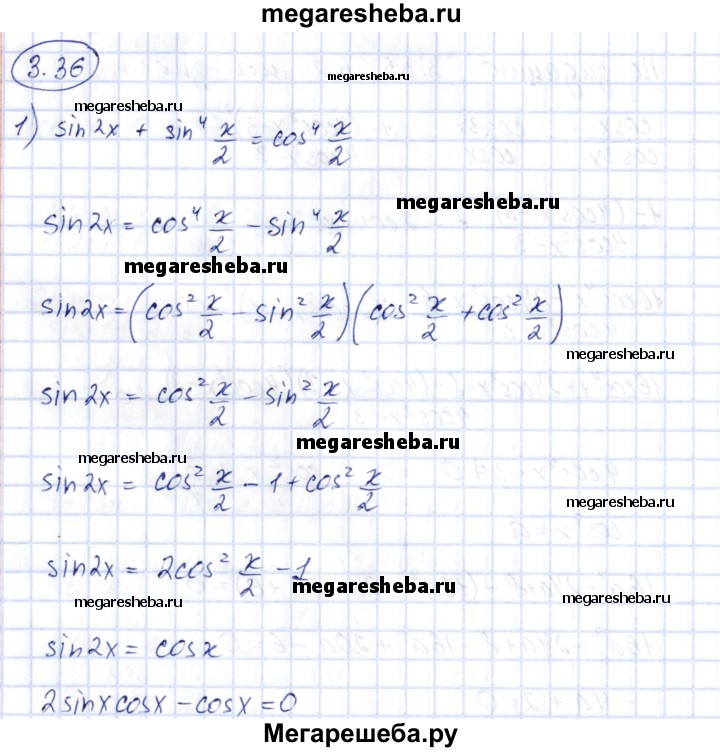 megaresheba.ru
3.36
megaresheba.ru
megaresheba.ru
1) sin2x + sin⁴ x/2 = cos⁴ x/2
megaresheba.ru
sin2x = cos⁴ x/2 − sin⁴ x/2
megaresheba.ru
sin2x = (cos² x/2 − sin² x/2)(cos² x/2 + cos² x/2)
megaresheba.ru
sin2x = cos² x/2 − sin² x/2
megaresheba.ru
megaresheba.ru
sin2x = cos² x/2 − 1 + cos² x/2
megaresheba.ru
sin2x = 2cos² x/2 − 1
megaresheba.ru
megaresheba.ru
megaresheba.ru
sin2x = cosx
2sinxcosx − cosx = 0
Мегарешеба.ру